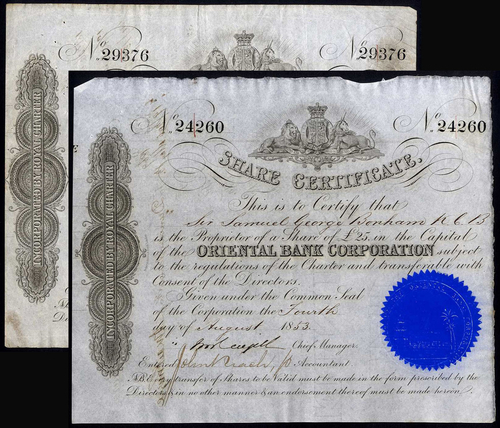 No 29376
No 29376
INCORPORATED BY ROYAL CHARTER
No 24260
No 24260
SHARE CERTIFICATE.
INCORPORATED BY ROYAL CHARTER
This is to Certify that
Sir Samuel George Bonham K.C.B
is the Proprietor of a Share of £25 in the Capital
of the ORIENTAL BANK CORPORATION subject
to the regulations of the Charter and transferable with
Consent of the Directors.
Given under the Common Seal
of the Corporation the Fourth
day of August 1853.
Chief Manager.
Entered John Accountant
N.B. Every transfer of Shares to be Valid must be made in the form prescribed by the
Directors & in no other manner & an endorsement thereof must be made hereon.